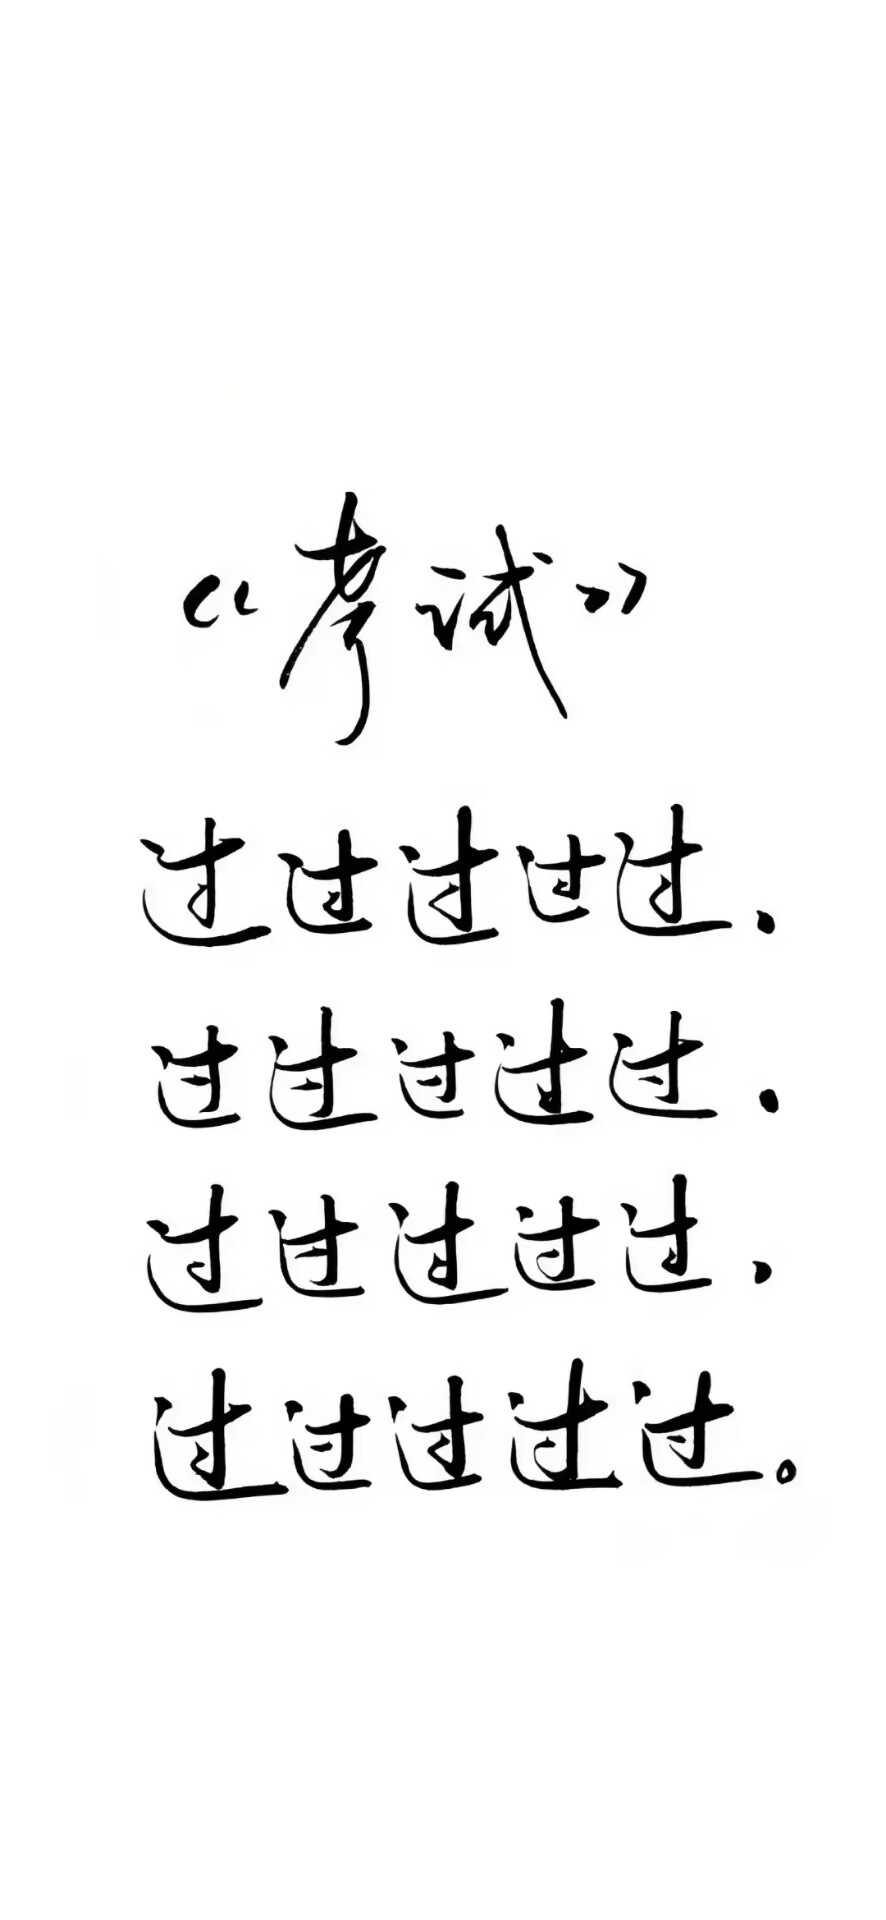 《考试》
过过过过过，
过过过过过，
过过过过过，
过过过过过。